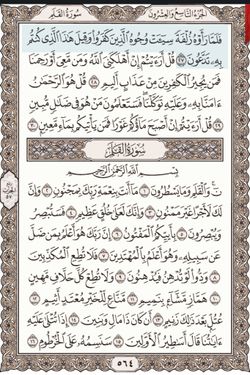 الجزء التاسع والعشرون
سورة القلم
فلما رأوه زلفة سيئت وجوه الذين كفروا وقيل هذا الذي كنتم
به تدعون ٢٧ قل أرءيتم إن أهلكني الله ومن معي أو رحمنا
فمن يجير الكافرين من عذاب أليم ٢٨ قل هو الرحمن
ءامنا به وعليه توكلنا فستعلمون من هو في ضلال مبين
٢٩ قل أرءيتم إن أصبح ماؤكم غورا فمن يأتيكم بماء معين ٣٠
سورة القلم
بسم الله الرحمن الرحيم
ن والقلم وما يسطرون ١ ما أنت بنعمة ربك بمجنون ٢ وإن
لك لأجرا غير ممنون ٣ وإنك لعلى خلق عظيم ٤ فستبصر
ويبصرون ٥ بأييكم المفتون ٦ إن ربك هو أعلم بمن ضل
عن سبيله وهو أعلم بالمهتدين ٧ فلا تطع المكذبين
٨ ودوا لو تدهن فيدهنون ٩ ولا تطع كل حلاف مهين
١٠ هماز مشاء بنميم ١١ مناع للخير معتد أثيم ١٢
عتل بعد ذلك زنيم ١٣ أن كان ذا مال وبنين ١٤ إذا تتلى عليه
ءاياتنا قال أساطير الأولين ١٥ سنسمه على الخرطوم ١٦
٥٦٤